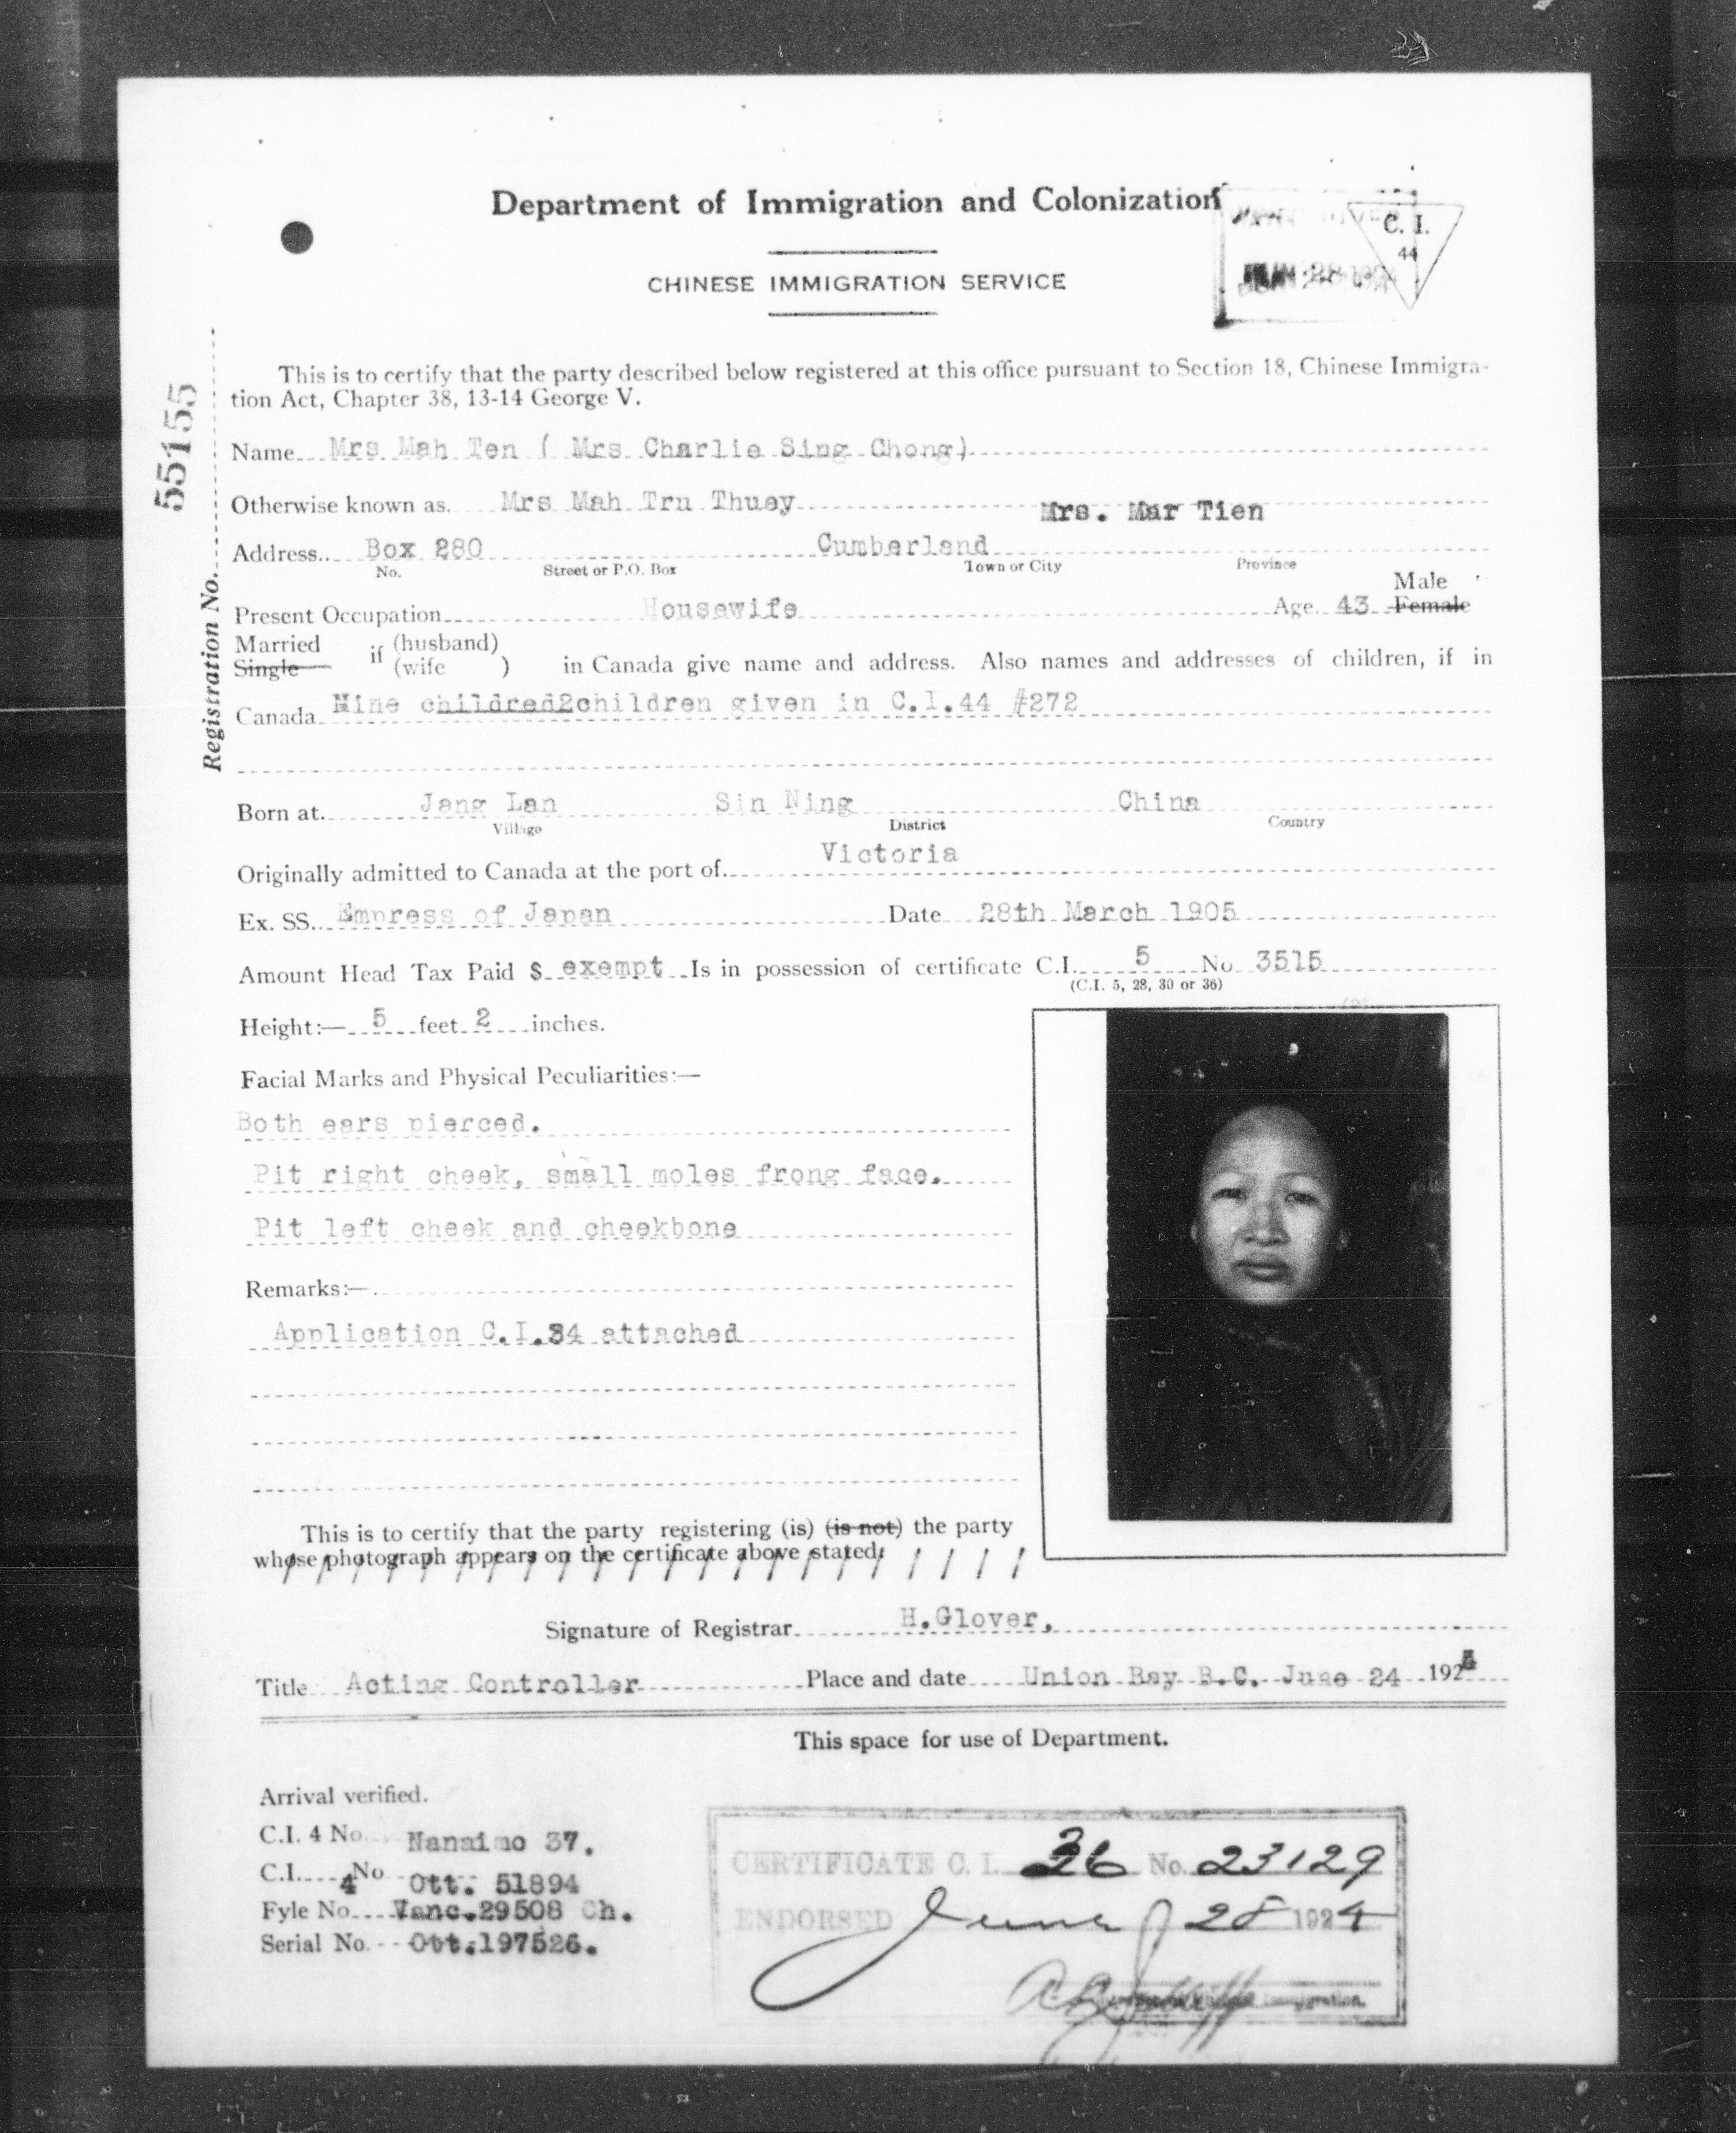 Department of Immigration and Colonization
CHINESE IMMIGRATION SERVICE
C. I.
44
JUN 28 192
This is to certify that the party described below registered at this office pursuant to Section 18, Chinese Immigra-
tion Act, Chapter 38, 13-14 George V.
Registration No. 55155
Name Mrs Mah Ten ( Mrs Charlie Sing Chong)
Otherwise known as. Mrs Mah Tru Thuey Mrs. Mar Tien
Address Box 280 Cumberland
No. Street or P.O. Box Town or City Province
Male
Present Occupation Housewife Age 43 Female
Married if (husband)
Single (wife ) in Canada give name and address. Also names and addresses of children, if in
Canada Nine childred2children given in C.I.44 #272
Born at Jang Lan Sin Ning China
Village District Country
Originally admitted to Canada at the port of Victoria
Ex. SS. Empress of Japan Date 28th March 1905
Amount Head Tax Paid $ exempt Is in possession of certificate C.I. 5 No 3515
(C.I. 5, 28, 30 or 36)
Height:— 5 feet 2 inches.
Facial Marks and Physical Peculiarities:—
Both ears pierced.
Pit right cheek, small moles frong face.
Pit left cheek and cheekbone
Remarks:—
Application C.I.34 attached
This is to certify that the party registering (is) (is not) the party
whose photograph appears on the certificate above stated.
Signature of Registrar H.Glover,
Title Acting Controller Place and date Union Bay B.C. June 24 1924
This space for use of Department.
Arrival verified.
C.I. 4 No. Nanaimo 37.
C.I. 4 No Ott. 51894
Fyle No. Vanc.29508 Ch.
Serial No. Ott.197526.
CERTIFICATE C. I. 36 No. 23129
ENDORSED June 28 1924
Immigration.